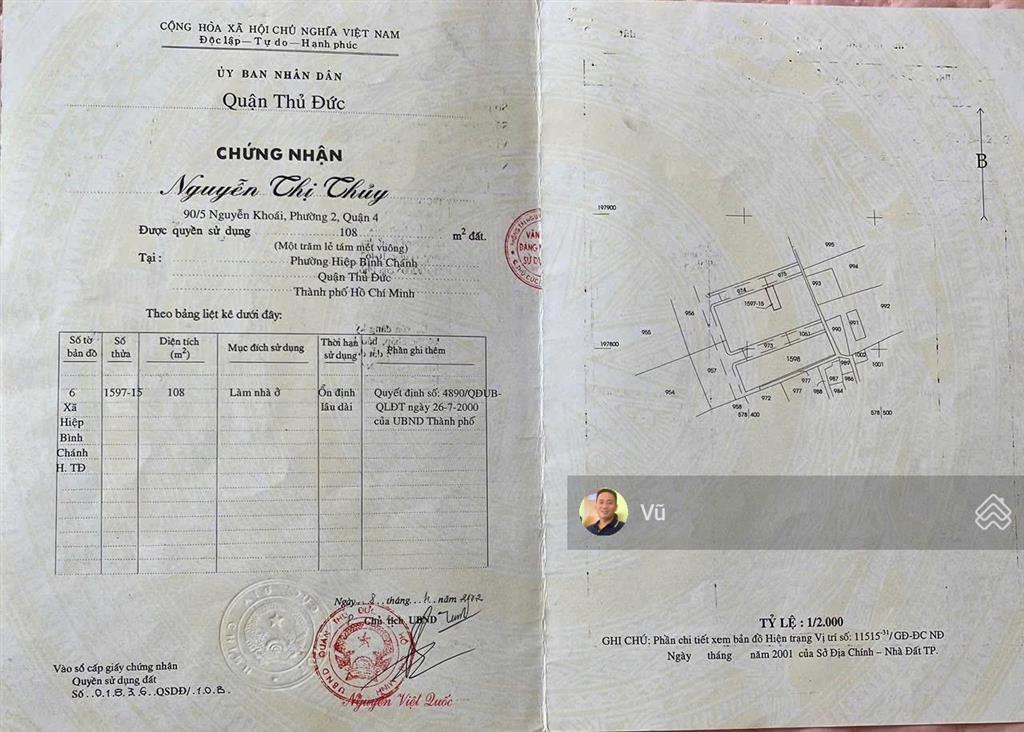 CỘNG HÒA XÃ HỘI CHỦ NGHĨA VIỆT NAM
Độc lập — Tự do — Hạnh phúc
ỦY BAN NHÂN DÂN
Quận Thủ Đức
CHỨNG NHẬN
Nguyễn Thị Thủy
90/5 Nguyễn Khoái, Phường 2, Quận 4
Được quyền sử dụng 108 m² đất.
(Một trăm lẻ tám mét vuông)
Tại : Phường Hiệp Bình Chánh
Quận Thủ Đức
Thành phố Hồ Chí Minh
Theo bảng liệt kê dưới đây:
Số tờ bản đồ Số thửa Diện tích (m²) Mục đích sử dụng Thời hạn sử dụng Phần ghi thêm
6 1597-15 108 Làm nhà ở Ổn định Quyết định số: 4890/QĐUB-
Xã lâu dài QLĐT ngày 26-7-2000
Hiệp của UBND Thành phố
Bình
Chánh
H. TĐ
Ngày 8 tháng năm 2002
Chủ tịch UBND
UBND QUẬN THỦ ĐỨC
Nguyễn Việt Quốc
Vào sổ cấp giấy chứng nhận
Quyền sử dụng đất
Số 01836 QSDĐ/ 10B.
B
197900
995
994
975
974
993
1597-15
956
992
955
991
990
1061
197800
973
1598
989
1002
1001
957
954
977
977
987
986
988
984
972
958
578 400
578 500
Vũ
TỶ LỆ : 1/2.000
GHI CHÚ: Phần chi tiết xem bản đồ Hiện trạng Vị trí số: 11515-31/ GĐ-ĐC NĐ
Ngày tháng năm 2001 của Sở Địa Chính – Nhà Đất TP.